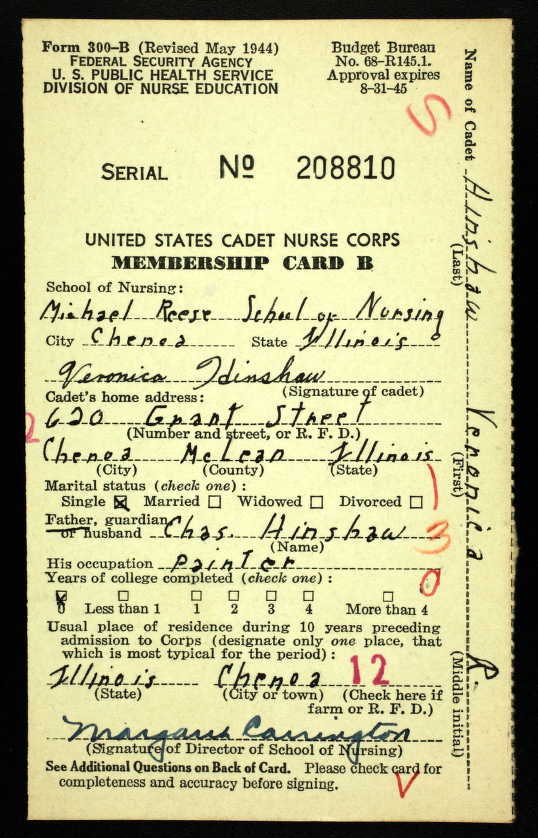 Form 300-B (Revised May 1944)
FEDERAL SECURITY AGENCY
U. S. PUBLIC HEALTH SERVICE
DIVISION OF NURSE EDUCATION
Budget Bureau
No. 68-R145.1.
Approval expires
8-31-45
SERIAL Nº 208810
UNITED STATES CADET NURSE CORPS
MEMBERSHIP CARD B
School of Nursing:
Michael Reese School of Nursing
City Chenoa State Illinois
Veronica Hinshaw
(Signature of cadet)
Cadet's home address:
620 Grant Street
(Number and street, or R. F. D.)
Chenoa McLean Illinois
(City) (County) (State)
Marital status (check one):
Single ☒ Married ☐ Widowed ☐ Divorced ☐
Father, guardian
or husband Chas. Hinshaw
(Name)
His occupation painter
Years of college completed (check one):
0 Less than 1 1 2 3 4 More than 4
Usual place of residence during 10 years preceding
admission to Corps (designate only one place, that
which is most typical for the period):
Illinois Chenoa 12
(State) (City or town) (Check here if
farm or R. F. D.)
Margaret Carrington
(Signature of Director of School of Nursing)
See Additional Questions on Back of Card. Please check card for
completeness and accuracy before signing.
Name of Cadet Hinshaw Veronica R.
(Last) (First) (Middle initial)
S
2
1
3
0